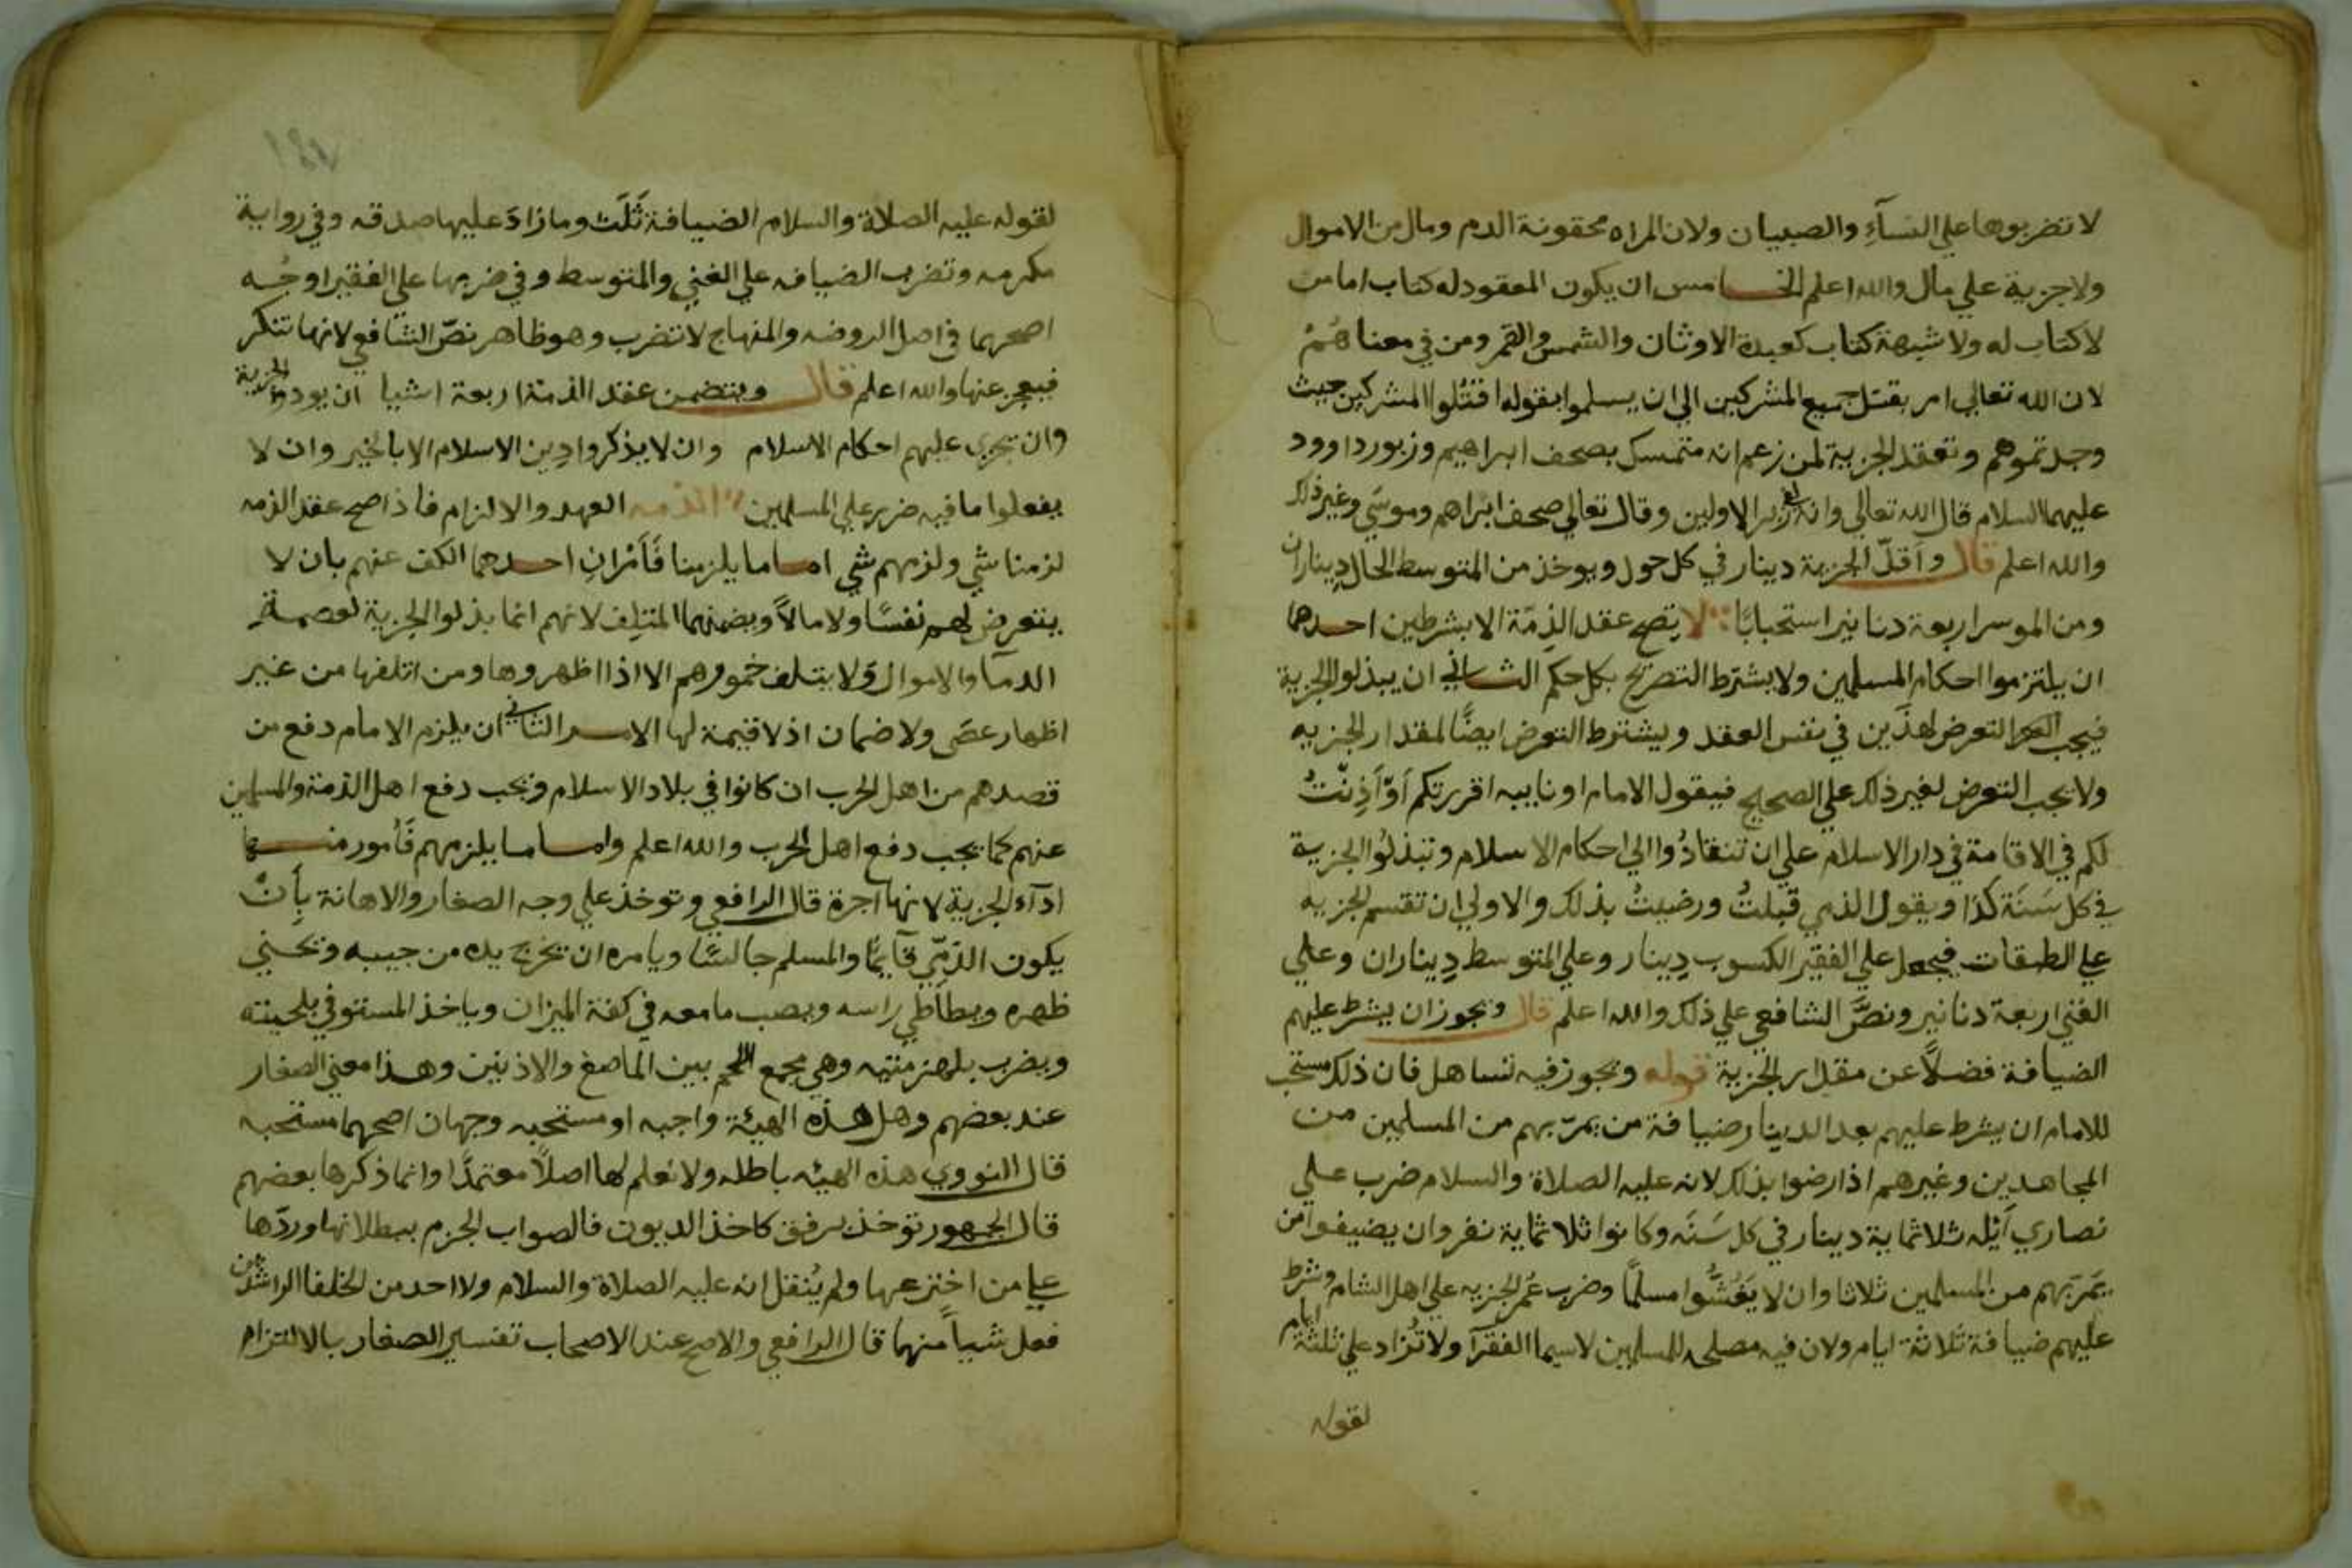 لا تضربوها علي النسآء والصبيان ولان المراه محقونة الدم ومال من الاموال
ولا جزية علي مال والله اعلم الخامس ان يكون المعقود له كتاب اما من
لا كتاب له ولا شبهة كتاب كعبدة الاوثان والشمس والقمر ومن في معناهُمْ
لان الله تعالي امر بقتل جميع المشركين الي ان يسلموا بقوله اقتُلوا المشركين حيث
وجدتموهم وتعقد الجزية لمن زعم انه متمسك بصحف ابراهيم وزبور داوود
عليهما السلام قال الله تعالي وانه لفي زبر الاولين وقال تعالي صحف ابراهم وموسَي وغير ذلك
والله اعلم قال وأقلّ الجزية دينار في كل حول ويوخذ من المتوسط الحال ديناران
ومن الموسر اربعة دنانير استحبابًا لا يصح عقد الذمّة الا بشرطين احدهما
ان يلتزموا احكام المسلمين ولا يشترط التصريح بكل حكم الثاني ان يبذلوا الجزية
فيجب التعرض لهذَين في نفس العقد ويشترط التعرض ايضًا لمقدار الجزيه
ولا يجب التعرض لغير ذلك علي الصحيح فيقول الامام او نايبه اقررتكم أوْ أَذِنْتُ
لكم في الاقامة في دار الاسلام علي ان تنقادُوا الي احكام الاسلام وتبذلُوا الجزية
في كل سَنَة كذا ويقول الذمي قبلتُ ورضيتُ بذلك والاولي ان تقسم الجزيه
علي الطبقات فيجعل علي الفقير الكسوب دِينار وعلي المتوسط دِيناران وعلي
الغني اربعة دنانير ونصَّ الشافعي علي ذلك والله اعلم قال ويجوز ان يشرط عليهم
الضيافة فضلاً عن مقدار الجزية قوله ويجوز فيه تساهل فان ذلك مستحب
للامام ان يشرط عليهم بعد الدينار ضيافة من يمرّ بهم من المسلمين من
المجاهدين وغيرهم اذا رضوا بذلك لانه عليه الصلاة والسلام ضرب علي
نصاري أيله ثلاثماية دينار في كل سَنَه وكانوا ثلاثماية نفر وان يضيفوا من
يمَر بهم من المسلمين ثلاثا وان لا يَغُشُّوا مسلمًا وضرب عُمر الجزيه علي اهل الشام وشرط
عليهم ضيافة ثلاثة ايام ولان فيه مصلحه للمسلمين لاسيما الفقرآ ولا تُزاد علي ثلثة ايام
لقوله
لقوله عليه الصلاة والسلام الضيافة ثَلَث وما زادَ عليها صدقه وفي رواية
مكرمه وتضرب الضيافه علي الغني والمتوسط وفي ضربها علي الفقير اوجُه
اصحهما في اصل الروضه والمنهاج لا تضرب وهو ظاهر نصّ الشافعي لانها تتكر
فيعجز عنها والله اعلم قال ويتضمن عقد الذمة اربعة اشيا ان يودوا الجزية
وان تجري عليهم احكام الاسلام وان لا يذكروا دِين الاسلام الا بالخير وان لا
يفعلوا ما فيه ضرر علي المسلمين الذمه العهد والالزام فاذا صح عقد الذمه
لزمنا شي ولزمهم شي اما ما يلزمنا فَأَمْرانِ احدهما الكف عنهم بان لا
يتعرض لهم نفسًا ولا مالاً ويضمنهما المتلِف لانهم انما بذلوا الجزية لعصمةِ
الدمآ والاموال وَلا يتلف خمورهم الا اذا اظهروها ومن اتلفها من غير
اظهار عصَي ولا ضمان اذ لا قيمة لها الامر الثاني ان يلزم الامام دفع من
قصدهم من اهل الحرب ان كانوا في بلاد الاسلام ويجب دفع اهل الذمة والمسلمين
عنهم كما يجب دفع اهل الحرب والله اعلم واما ما يلزمهم فَأُمور منها
ادآء الجزية لانها اجرة قال الرافعي وتوخذ علي وجه الصغار والاهانة بِأَنْ
يكون الذمّي قآيمًا والمسلم جالسًا ويامره ان يخرج يده من جيبه ويحني
ظهره ويطاطي راسه ويصب ما معه في كفة الميزان وياخذ المستوفي بلحيته
ويضرب بلهزمتيه وهي مجمع اللحم بين الماضغ والاذنين وهذا معني الصغار
عند بعضهم وهل هذه الهيئة واجبه او مستحبه وجهان اصحهما مستحبه
قال النووي هذه الهيئه باطله ولا نعلم لها اصلاً معتمدًا وانما ذكرها بعضهم
قال الجمهور توخذ برفق كاخذ الديون فالصواب الجزم ببطلانها وردّها
علي من اخترعها ولم يُنقل انه عليه الصلاة والسلام ولا احد من الخلفا الراشدين
فعل شيأ منهما قال الرافعي والاصح عند الاصحاب تفسير الصغار بالالتزام